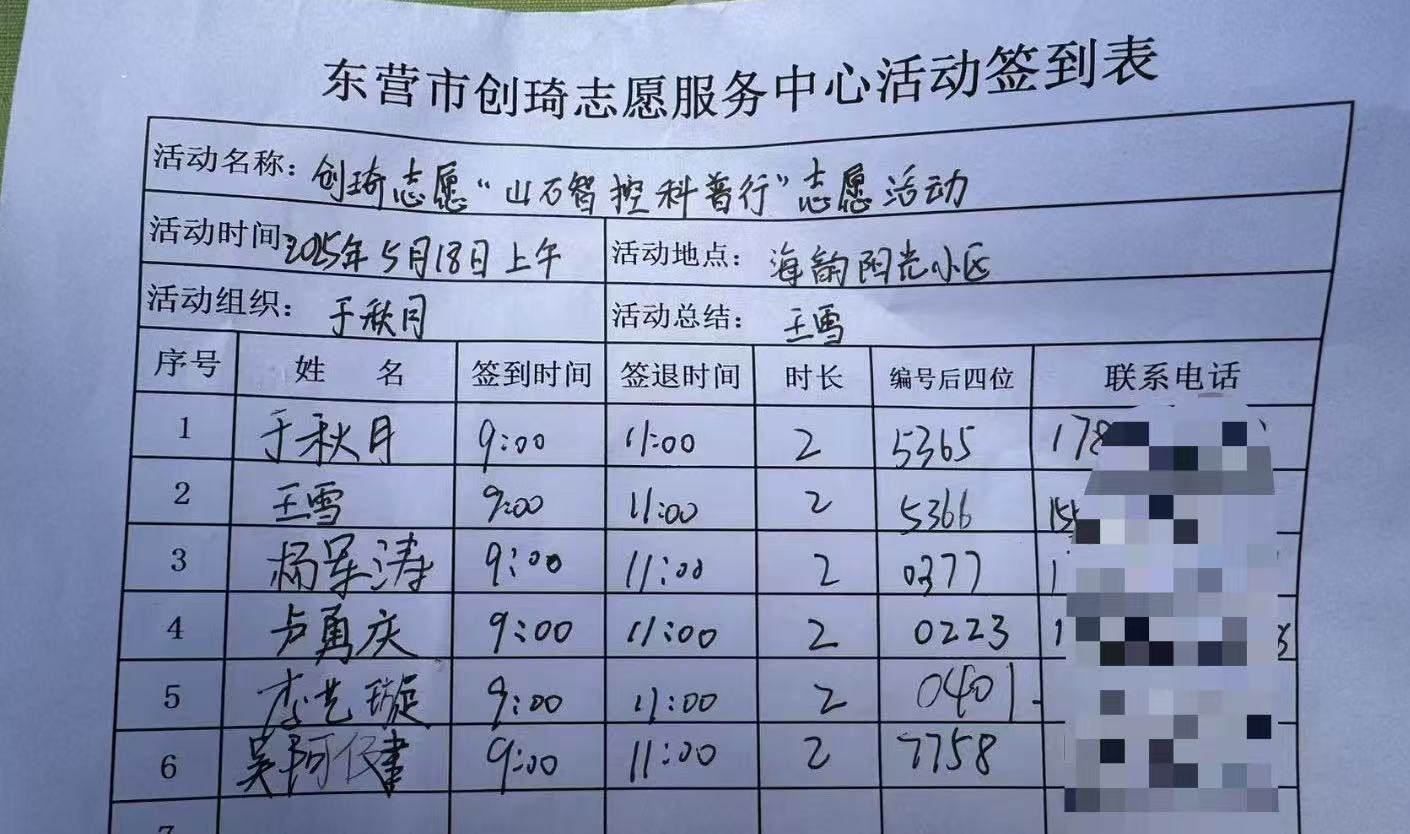 东营市创琦志愿服务中心活动签到表
活动名称：创琦志愿“山石智控科普行”志愿活动
活动时间：2025年5月18日上午 活动地点：海韵阳光小区
活动组织：于秋月 活动总结：王雪
序号 姓 名 签到时间 签退时间 时长 编号后四位 联系电话
1 于秋月 9:00 11:00 2 5365 178
2 王雪 9:00 11:00 2 5366 15
3 杨军涛 9:00 11:00 2 0377 1
4 卢勇庆 9:00 11:00 2 0223 1
5 李艺璇 9:00 11:00 2 0401
6 吴阿 9:00 11:00 2 7758
7